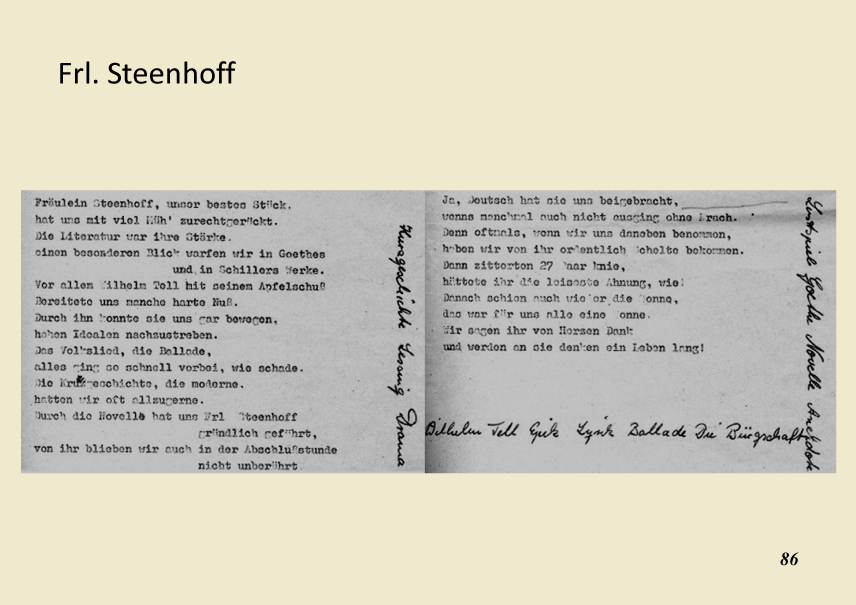 Frl. Steenhoff
Fräulein Steenhoff, unser bestes Stück.
hat uns mit viel Müh' zurechtgerückt.
Die Literatur war ihre Stärke.
einen besonderen Blick warfen wir in Goethes
und in Schillers Werke.
Vor allem Wilhelm Tell mit seinem Apfelschuß
Bereitete uns manche harte Nuß.
Durch ihn konnte sie uns gar bewegen,
hohen Idealen nachzustreben.
Das Volkslied, die Ballade,
alles ging so schnell vorbei, wie schade.
Die Kruzgeschichte, die moderne.
hatten wir oft allzugerne.
Durch die Novelle hat uns Frl Steenhoff
gründlich geführt,
von ihr blieben wir auch in der Abschlußstunde
nicht unberührt
Kurzgeschichte Lessing Drama
Ja, Deutsch hat sie uns beigebracht,
wenns manchmal auch nicht ausging ohne Krach.
Denn oftmals, wenn wir uns daneben benommen,
haben wir von ihr ordentlich Schelte bekommen.
Dann zitterten 27 Paar Knie,
hättete ihr die leiseste Ahnung, wie!
Danach schien auch wieder die Sonne,
das war für uns alle eine Wonne.
Wir sagen ihr von Herzen Dank
und werden an sie denken ein Leben lang!
Wilhelm Tell Epik Lyrik Ballade Die Bürgschaft
Lustspiele Goethe Novelle Anekdote
86